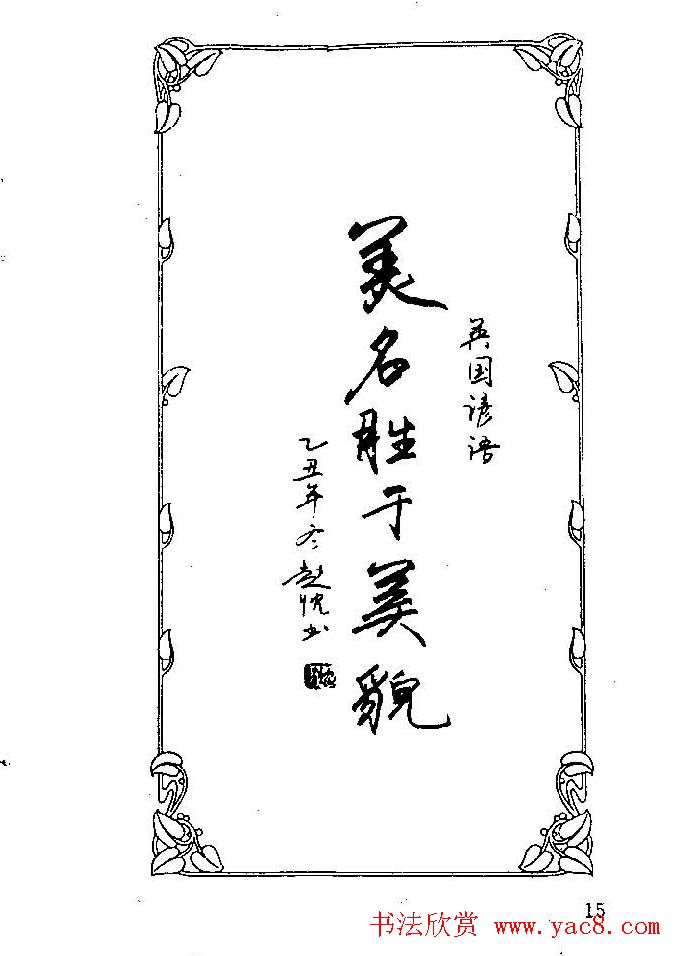 英国谚语
美名胜于美貌
乙丑年冬赵恺书
15
书法欣赏 www.yac8.com